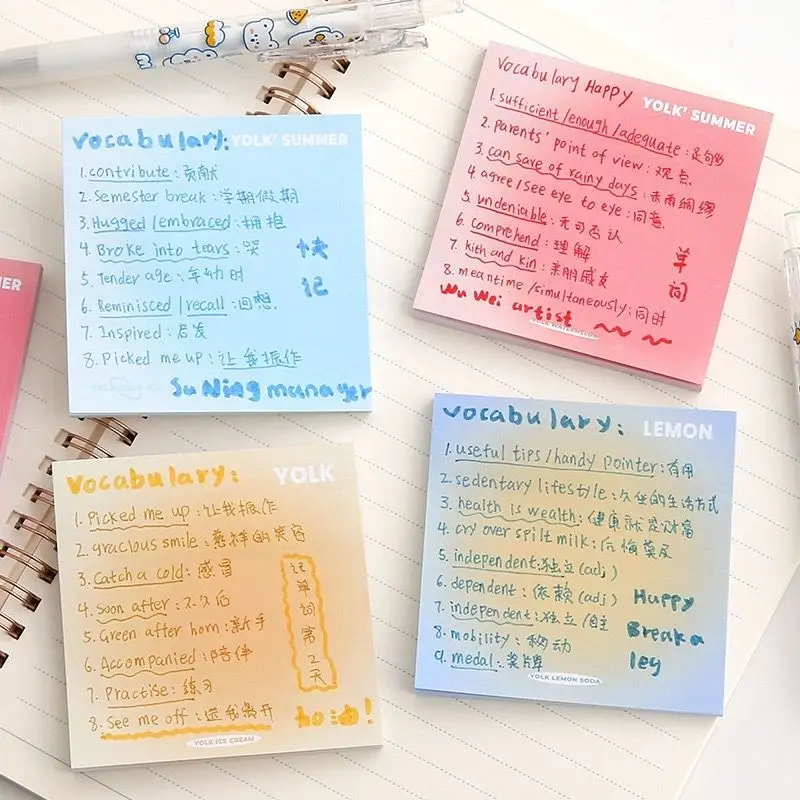 vocabulary: YOLK' SUMMER
1. contribute: 贡献
2. Semester break: 学期假期
3. Hugged/embraced: 拥抱
4. Broke into tears: 哭
5. Tender age: 年幼时
6. Reminisced/recall: 回想
7. Inspired: 启发
8. Picked me up: 让我振作
快
记
Su Ning manayer
Vocabulary Happy YOLK' SUMMER
1. sufficient/enough/adequate: 足够
2. parents' point of view: 观点
3. can save of rainy days: 未雨绸缪
4. agree/see eye to eye: 同意
5. undeniable: 无可否认
6. comprehend: 理解
7. kith and kin: 亲朋戚友
8. meantime/simultaneously: 同时
单
词
Wu Wei artist
YOLK WATERMELON
ER
Vocabulary: YOLK
1. Picked me up: 让我振作
2. gracious smile: 慈祥的笑容
3. Catch a cold: 感冒
4. soon after: 不久后
5. Green after horn: 新手
6. Accompanied: 陪伴
7. Practise: 练习
8. See me off: 送我离开
记
单
词
第
2
天
YOLK ICE CREAM
vocabulary: LEMON
1. useful tips/handy pointer: 有用
2. sedentary lifestyle: 久坐的生活方式
3. health is wealth: 健康就是财富
4. cry over spilt milk: 后悔莫及
5. independent: 独立 (adj)
6. dependent: 依赖 (adj)
7. independent: 独立/自主
8. mobility: 移动
9. medal: 奖牌
Happy
Break a
leg
YOLK LEMON SODA